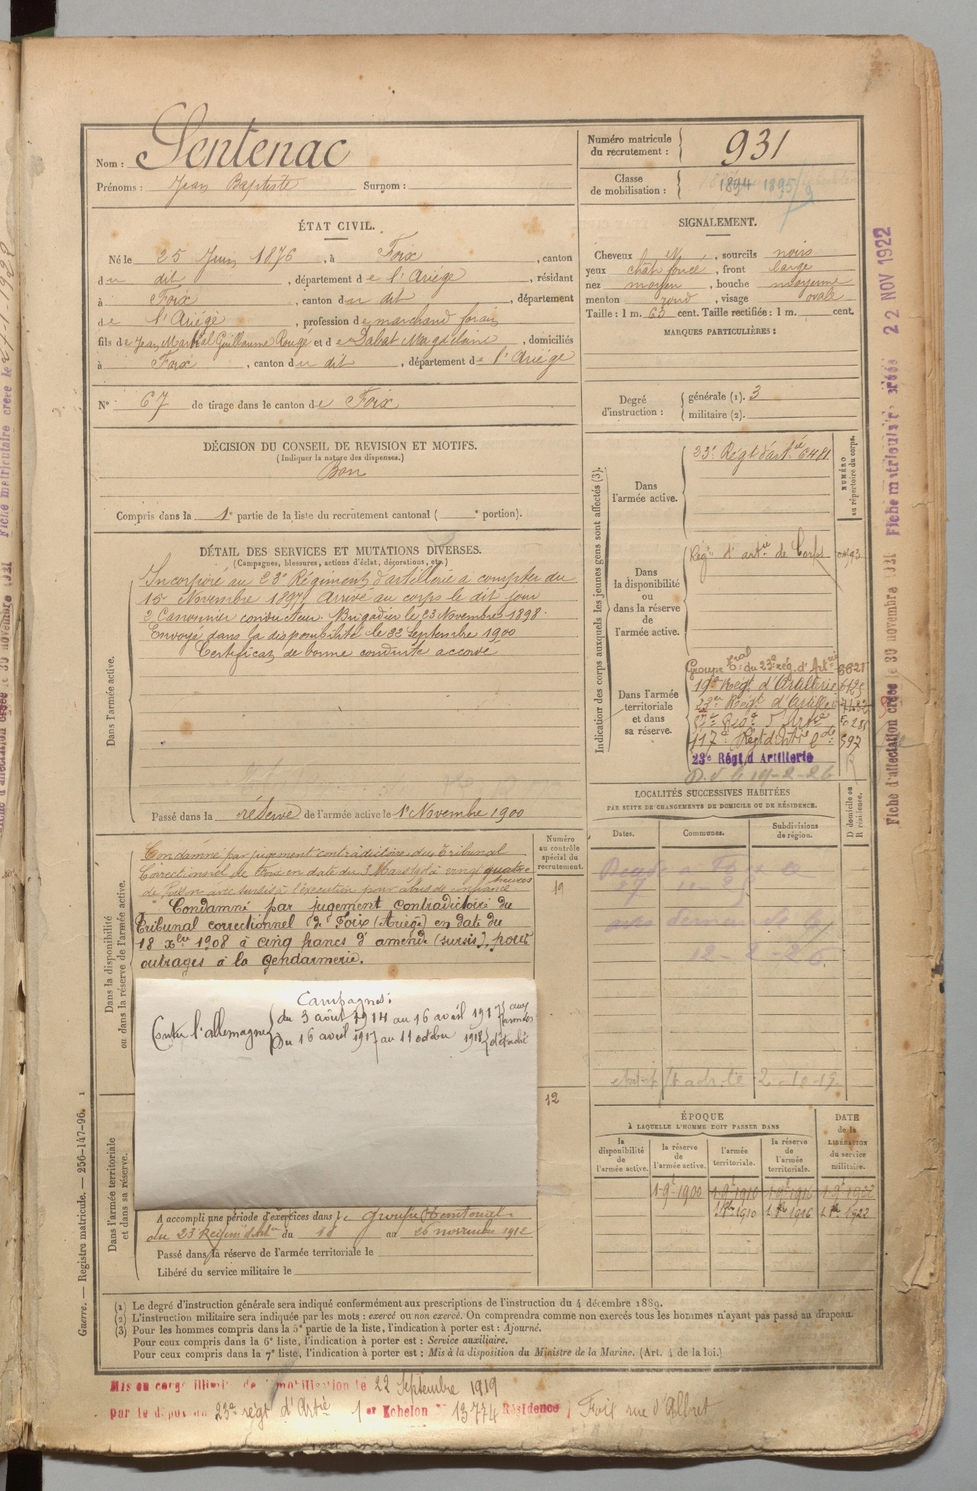 Nom : Sentenac
Prénoms : Jean Baptiste Surnom :
Numéro matricule du recrutement : 931
Classe de mobilisation : 1894 1895/9
ÉTAT CIVIL.
Né le 25 Juin 1876, à Foix, canton
du dit, département de l'Ariège, résidant
à Foix, canton du dit, département
de l'Ariège, profession de marchand forain
fils de Jean Martial Guillaume Rouge et de Dabat Magdelaine, domiciliés
à Foix, canton du dit, département de l'Ariège
N° 67 de tirage dans le canton de Foix
SIGNALEMENT.
Cheveux N, sourcils noirs
yeux chat foncé, front large
nez moyen, bouche moyenne
menton rond, visage ovale
Taille : 1 m. 63 cent. Taille rectifiée : 1 m. cent.
MARQUES PARTICULIÈRES :
Degré d'instruction : générale (1). 3
militaire (2).
DÉCISION DU CONSEIL DE REVISION ET MOTIFS.
(Indiquer la nature des dispenses.)
Bon
Compris dans la 1e partie de la liste du recrutement cantonal ( e portion).
DÉTAIL DES SERVICES ET MUTATIONS DIVERSES.
(Campagnes, blessures, actions d'éclat, décorations, etc.)
Dans l'armée active.
Incorporé au 23e Régiment d'artillerie à compter du
15 Novembre 1897 Arrivé au corps le dit jour
2e Canonnier conducteur. Brigadier le 23 Novembre 1898.
Envoyé dans la disponibilité le 22 Septembre 1900
Certificat de bonne conduite accordé
Passé dans la réserve de l'armée active le 1er Novembre 1900
Indication des corps auxquels les jeunes gens sont affectés (3).
NUMÉRO au répertoire du corps.
Dans l'armée active.
23e Régt d'artie 6481
Dans la disponibilité ou dans la réserve de l'armée active.
Régt d'artie de Corps
Dans l'armée territoriale et dans sa réserve.
Groupe tral du 23e rég. d'Artie
19e Régt d'Artillerie
23e Régt d'Artie
117e Régt d'Artie Lde 597
23e Régt d'Artillerie
LOCALITÉS SUCCESSIVES HABITÉES
PAR SUITE DE CHANGEMENTS DE DOMICILE OU DE RÉSIDENCE.
Dates. Communes. Subdivisions de région. D domicile ou R résidence.
12-2-26
2-10-19
Dans la disponibilité ou dans la réserve de l'armée active.
Numéro au contrôle spécial du recrutement.
19
Condamné par jugement contradictoire du Tribunal
Correctionnel de Foix en date du 3 Mars à vingt quatre heures
de prison avec sursis à l'exécution pour abus de confiance
Condamné par jugement contradictoire du
Tribunal correctionnel de Foix (Ariège) en date du
18 xbre 1908 à cinq francs d'amende (sursis), pour
outrages à la Gendarmerie.
Campagnes :
Contre l'allemagne
du 3 août 1914 au 16 avril 1917 aux armées
Du 16 avril 1917 au 11 octobre 1918 détaché
12
Dans l'armée territoriale et dans sa réserve.
A accompli une période d'exercices dans le groupe territorial
du 23e Régiment d'Artie du 18 au 26 novembre 1912
Passé dans la réserve de l'armée territoriale le
Libéré du service militaire le
ÉPOQUE
À LAQUELLE L'HOMME DOIT PASSER DANS
DATE de la LIBÉRATION du service militaire.
la disponibilité de l'armée active.
la réserve de l'armée active.
l'armée territoriale.
la réserve de l'armée territoriale.
1-9-1900 1-9-1910 1-9-1916 1-9-1922
1 8bre 1910 1 8bre 1916 1 8bre 1922
(1) Le degré d'instruction générale sera indiqué conformément aux prescriptions de l'instruction du 4 décembre 1889.
(2) L'instruction militaire sera indiquée par les mots : exercé ou non exercé. On comprendra comme non exercés tous les hommes n'ayant pas passé au drapeau.
(3) Pour les hommes compris dans la 5e partie de la liste, l'indication à porter est : Ajourné.
Pour ceux compris dans la 6e liste, l'indication à porter est : Service auxiliaire.
Pour ceux compris dans la 7e liste, l'indication à porter est : Mis à la disposition du Ministre de la Marine. (Art. 4 de la loi.)
Mis en congé illimité de démobilisation le 22 Septembre 1919
par le dépôt du 23e régt d'Artie 1er Echelon N° 13774 Résidence Foix rue d'Albret
Guerre. — Registre matricule. — 256-147-96. 1
Fiche d'affectation créée le 30 novembre 1921 Fiche matriculaire créée 22 NOV 1922